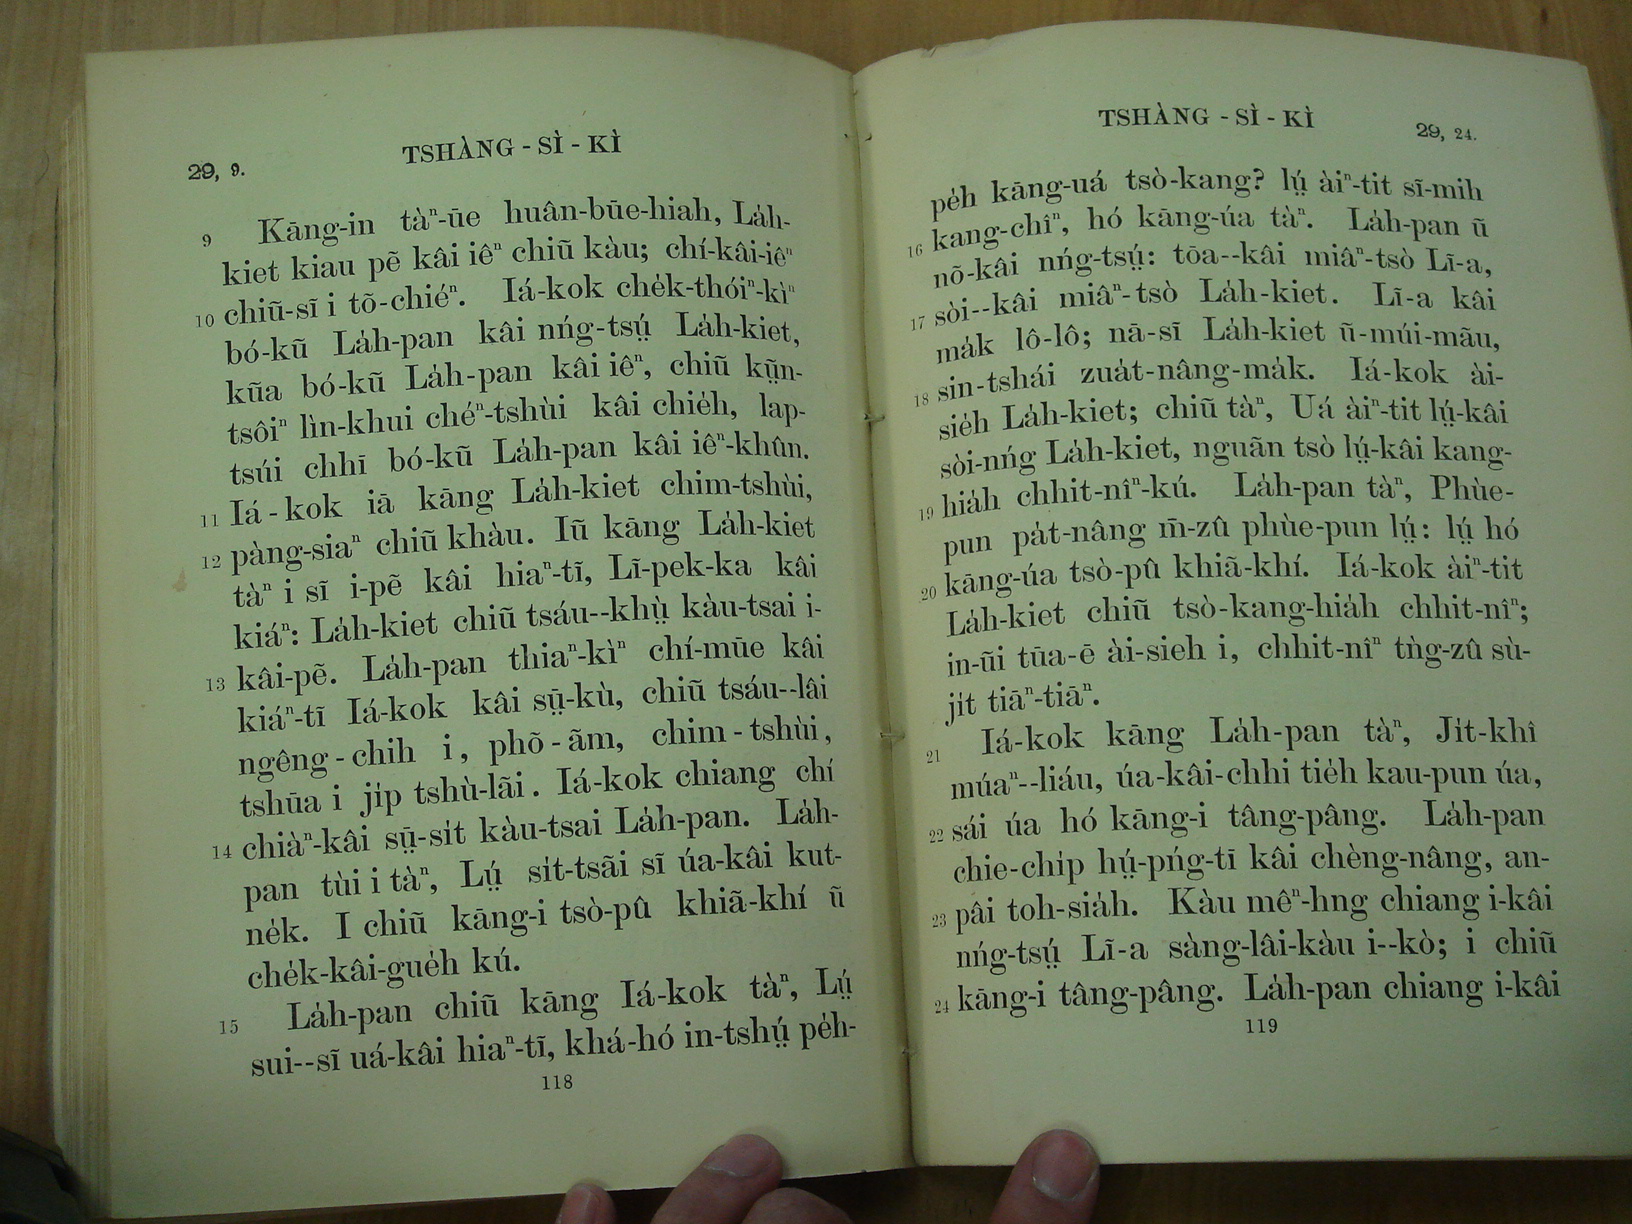 29, 9.
TSHÀNG - SÌ - KÌ
9 Kāng-in tàⁿ-ūe huân-būe-hiah, La̍h-
kiet kiau pẽ kâi iêⁿ chiũ kàu; chí-kâi-iêⁿ
10 chiũ-sĩ i tõ-chiéⁿ. Iá-kok che̍k-thóiⁿ-kìⁿ
bó-kũ La̍h-pan kâi nńg-tsṳ́ La̍h-kiet,
kũa bó-kũ La̍h-pan kâi iêⁿ, chiũ kṳ̃n-
tsôiⁿ lìn-khui chéⁿ-tshùi kâi chie̍h, lap-
tsúi chhī bó-kũ La̍h-pan kâi iêⁿ-khûn.
11 Iá - kok iā kāng La̍h-kiet chim-tshùi,
12 pàng-siaⁿ chiũ khàu. Iũ kāng La̍h-kiet
tàⁿ i sĩ i-pẽ kâi hiaⁿ-tĩ, Lĩ-pek-ka kâi
kiáⁿ: La̍h-kiet chiũ tsáu--khṳ̀ kàu-tsai i-
13 kâi-pẽ. La̍h-pan thiaⁿ-kìⁿ chí-mūe kâi
kiáⁿ-tĩ Iá-kok kâi sṳ̄-kù, chiũ tsáu--lâi
ngêng - chih i, phõ - ãm, chim - tshùi,
tshūa i ji̍p tshù-lãi. Iá-kok chiang chí
14 chiàⁿ-kâi sṳ̄-si̍t kàu-tsai La̍h-pan. La̍h-
pan tùi i tàⁿ, Lṳ́ si̍t-tsãi sĩ úa-kâi kut-
ne̍k. I chiũ kāng-i tsò-pû khiã-khí ũ
che̍k-kâi-gue̍h kú.
15 La̍h-pan chiũ kāng Iá-kok tàⁿ, Lṳ́
sui--sĩ uá-kâi hiaⁿ-tĩ, khá-hó in-tshṳ́ pe̍h-
118
TSHÀNG - SÌ - KÌ
29, 24.
pe̍h kāng-uá tsò-kang? lṳ́ àiⁿ-tit sĩ-mih
16 kang-chîⁿ, hó kāng-úa tàⁿ. La̍h-pan ũ
nõ-kâi nńg-tsṳ́: tōa--kâi miâⁿ-tsò Lĩ-a,
17 sòi--kâi miâⁿ-tsò La̍h-kiet. Lĩ-a kâi
ma̍k lô-lô; nā-sĩ La̍h-kiet ũ-múi-mãu,
18 sin-tshái zua̍t-nâng-ma̍k. Iá-kok ài-
sie̍h La̍h-kiet; chiũ tàⁿ, Uá àiⁿ-tit lṳ́-kâi
sòi-nńg La̍h-kiet, nguãn tsò lṳ́-kâi kang-
19 hia̍h chhit-nîⁿ-kú. La̍h-pan tàⁿ, Phùe-
pun pa̍t-nâng m̃-zû phùe-pun lṳ́: lṳ́ hó
20 kāng-úa tsò-pû khiã-khí. Iá-kok àiⁿ-tit
La̍h-kiet chiũ tsò-kang-hia̍h chhit-nîⁿ;
in-ũi tūa-ē ài-sieh i, chhit-nîⁿ tǹg-zû sù-
ji̍t tiāⁿ-tiāⁿ.
21 Iá-kok kāng La̍h-pan tàⁿ, Ji̍t-khî
múaⁿ--liáu, úa-kâi-chhi tie̍h kau-pun úa,
22 sái úa hó kāng-i tâng-pâng. La̍h-pan
chie-chi̍p hṳ́-pńg-tī kâi chèng-nâng, an-
23 pâi toh-sia̍h. Kàu mêⁿ-hng chiang i-kâi
nńg-tsṳ́ Lĩ-a sàng-lâi-kàu i--kò; i chiũ
24 kāng-i tâng-pâng. La̍h-pan chiang i-kâi
119